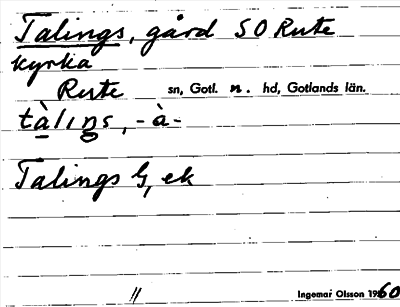 Talings, gård SO Rute
kyrka
Rute sn, Gotl. n. hd, Gotlands län.
tàlıŋs, -à-
Talings G, ek
Ingemar Olsson 1960